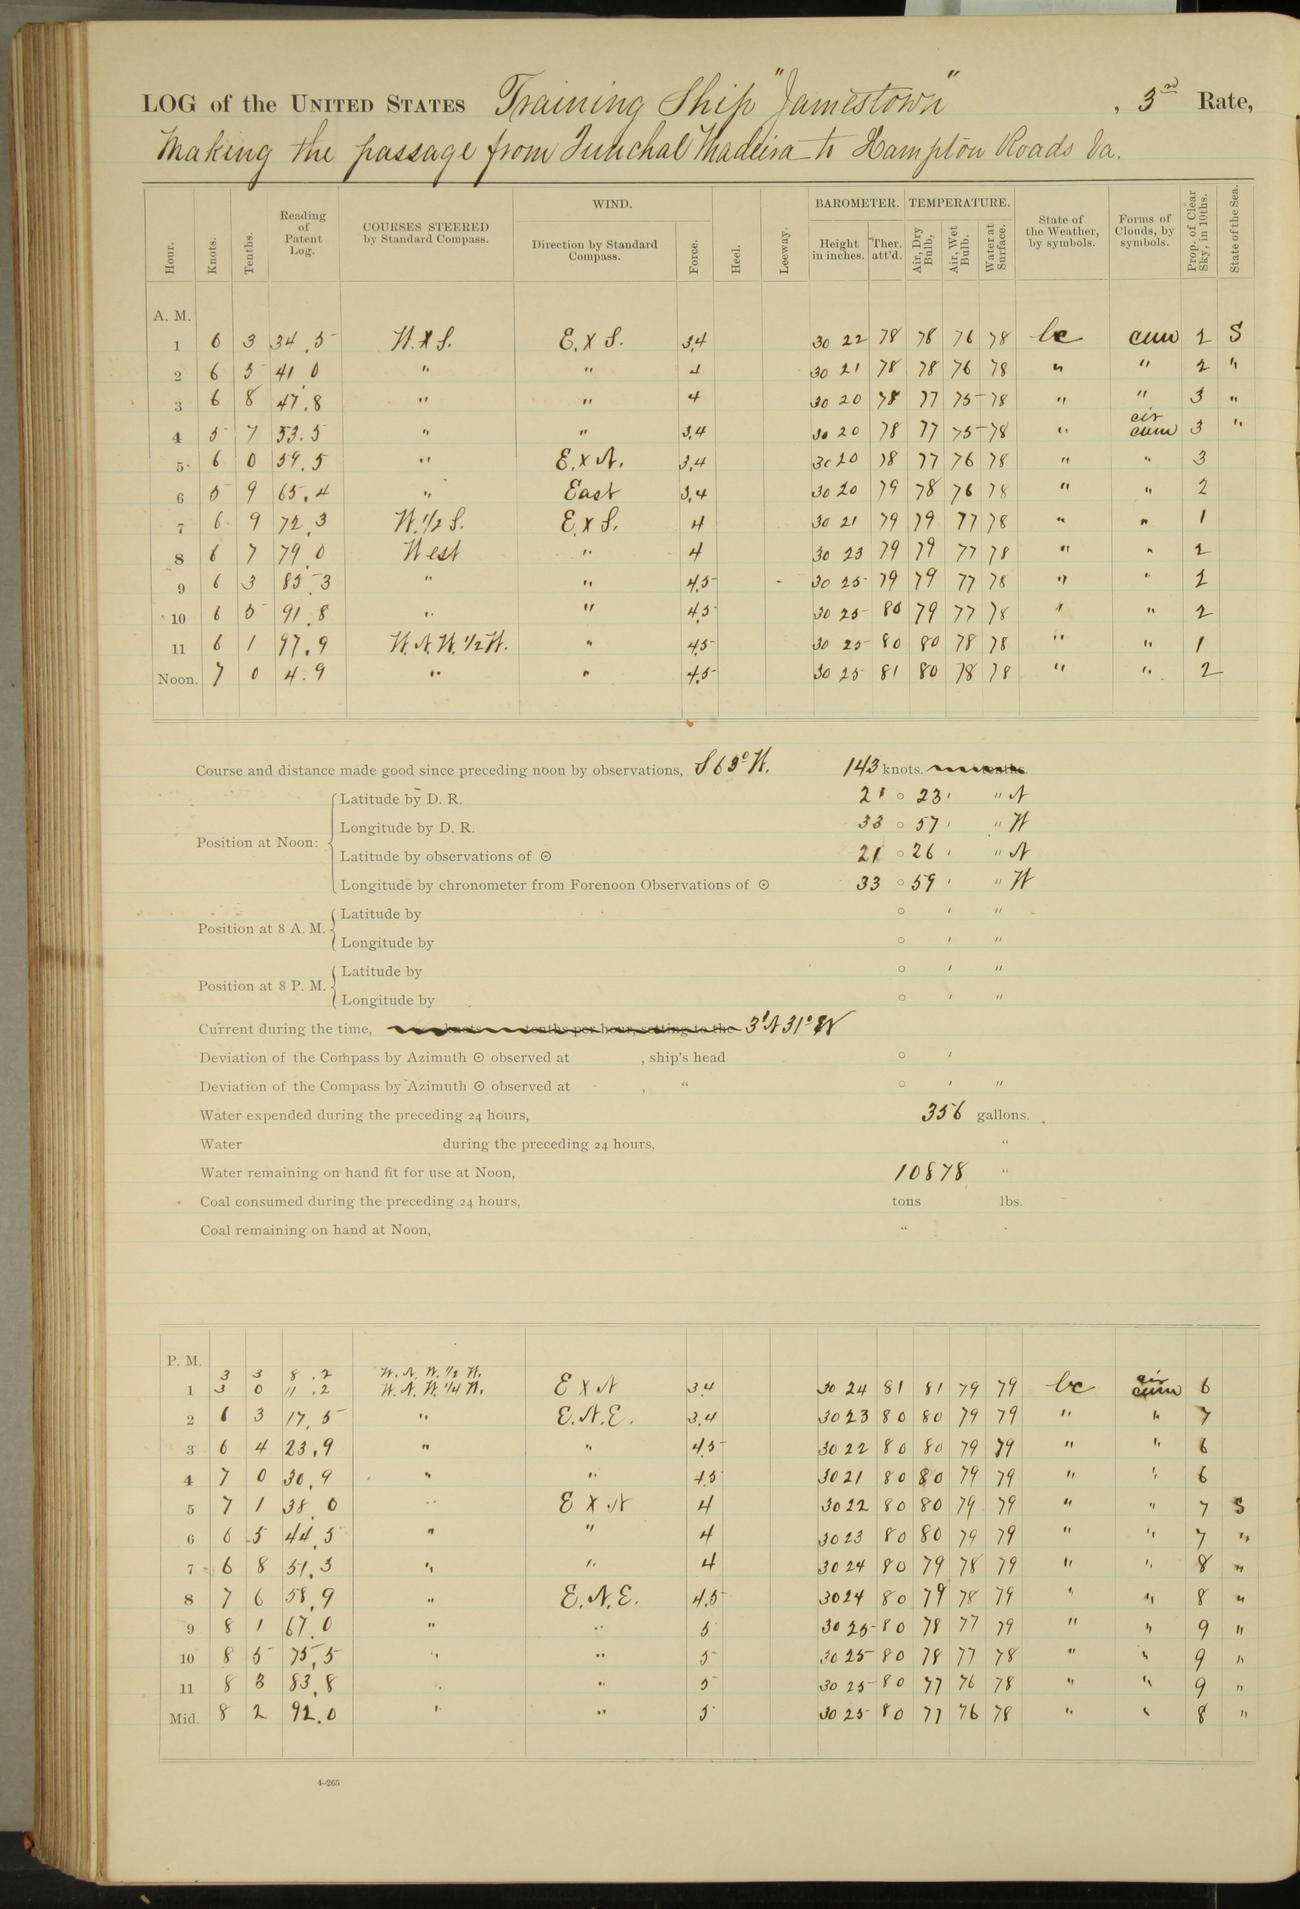 LOG of the UNITED STATES Training Ship "Jamestown", 3rd Rate,
Making the passage from Funchal Madeira to Hampton Roads Va.
Hour. Knots. Tenths. Reading of Patent Log. COURSES STEERED by Standard Compass. WIND. Direction by Standard Compass. Force. Heel. Leeway. BAROMETER. Height in inches. Ther. att'd. TEMPERATURE. Air, Dry Bulb, Air, Wet Bulb. Water at Surface. State of the Weather, by symbols. Forms of Clouds, by symbols. Prop. of Clear Sky, in 10ths. State of the Sea.
A. M.
1 6 3 34.5 W. x S. E. x S. 3,4 30 22 78 78 76 78 bc cum 2 S
2 6 5 41.0 " " 4 30 21 78 78 76 78 " " 2 "
3 6 8 47.8 " " 4 30 20 78 77 75 78 " " 3 "
4 5 7 53.5 " " 3,4 30 20 78 77 75 78 " cir cum 3 "
5 6 0 59.5 " E. x N. 3,4 30 20 78 77 76 78 " " 3
6 5 9 65.4 " East 3,4 30 20 79 78 76 78 " " 2
7 6 9 72.3 W. 1/2 S. E x S. 4 30 21 79 79 77 78 " " 1
8 6 7 79.0 West " 4 30 23 79 79 77 78 " " 2
9 6 3 85.3 " " 4.5 30 25 79 79 77 78 " " 2
10 6 5 91.8 " " 4.5 30 25 80 79 77 78 " " 2
11 6 1 97.9 W. N. W. 1/2 W. " 4.5 30 25 80 80 78 78 " " 1
Noon. 7 0 4.9 " " 4.5 30 25 81 80 78 78 " " 2
Course and distance made good since preceding noon by observations, S 63° W. 143 knots. tenths
Position at Noon:
Latitude by D. R. 21 ° 23 ' " N
Longitude by D. R. 33 ° 57 ' " W
Latitude by observations of ☉ 21 ° 26 ' " N
Longitude by chronometer from Forenoon Observations of ☉ 33 ° 59 ' " W
Position at 8 A. M.
Latitude by ° ' "
Longitude by ° ' "
Position at 8 P. M.
Latitude by ° ' "
Longitude by ° ' "
Current during the time, knots tenths per hour, setting to the 3' N 31° W
Deviation of the Compass by Azimuth ☉ observed at , ship's head ° '
Deviation of the Compass by Azimuth ☉ observed at , " ° ' "
Water expended during the preceding 24 hours, 356 gallons.
Water during the preceding 24 hours, "
Water remaining on hand fit for use at Noon, 10878 "
Coal consumed during the preceding 24 hours, tons lbs.
Coal remaining on hand at Noon, "
P. M.
3 3 8.2 W. N. W. 1/2 W.
1 3 0 11.2 W. N. W. 1/4 W. E x N 3.4 30 24 81 81 79 79 bc cir cum 6
2 6 3 17.5 " E. N. E. 3.4 30 23 80 80 79 79 " " 7
3 6 4 23.9 " " 4.5 30 22 80 80 79 79 " " 6
4 7 0 30.9 " " 4.5 30 21 80 80 79 79 " " 6
5 7 1 38.0 " E x N 4 30 22 80 80 79 79 " " 7 S
6 6 5 44.5 " " 4 30 23 80 80 79 79 " " 7 "
7 6 8 51.3 " " 4 30 24 80 79 78 79 " " 8 "
8 7 6 58.9 " E. N. E. 4.5 30 24 80 79 78 79 " " 8 "
9 8 1 67.0 " " 5 30 25 80 78 77 79 " " 9 "
10 8 5 75.5 " " 5 30 25 80 78 77 78 " " 9 "
11 8 3 83.8 " " 5 30 25 80 77 76 78 " " 9 "
Mid. 8 2 92.0 " " 5 30 25 80 77 76 78 " " 8 "
4-265